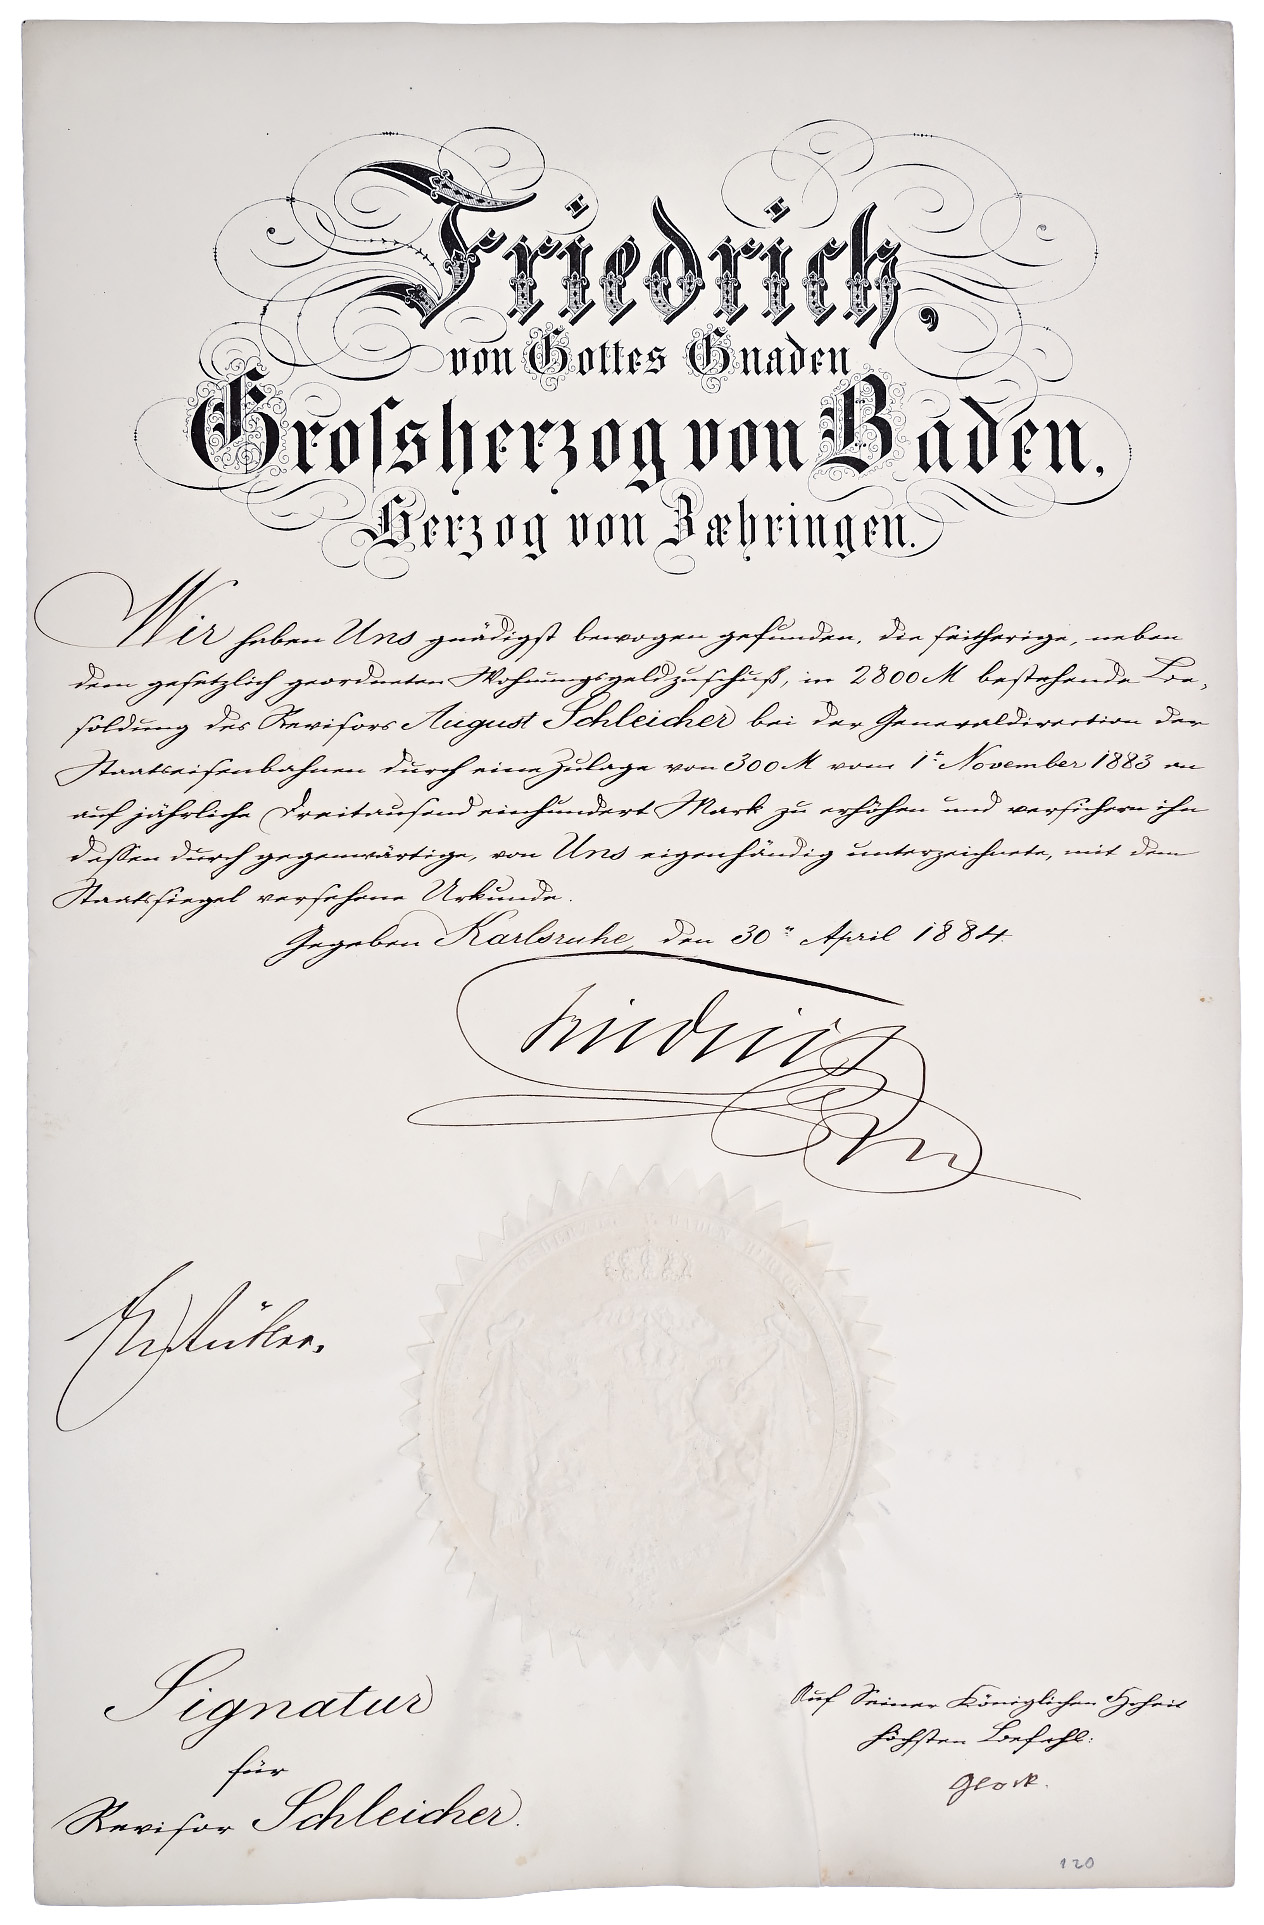 Friedrich,
von Gottes Gnaden
Grofsherzog von Baden,
Herzog von Zæhringen.
Wir haben Uns gnädigst bewogen gefunden, die seitherige, neben
dem gesetzlich geordneten Wohnungsgeldzuschuß, in 2800 M bestehende Be-
soldung des Revisors August Schleicher bei der Generaldirection der
Staatseisenbahnen durch eine Zulage von 300 M vom 1ten November 1883 an
auf jährliche Dreitausend einhundert Mark zu erhöhen und versichern ihn
dessen durch gegenwärtige, von Uns eigenhändig unterzeichnete, mit dem
Staatssiegel versehene Urkunde.
Gegeben Karlsruhe, den 30n April 1884.
Friedrich
Signatur
für
Revisor Schleicher.
Auf Seiner Königlichen Hoheit
höchsten Befehl:
Glock.
120